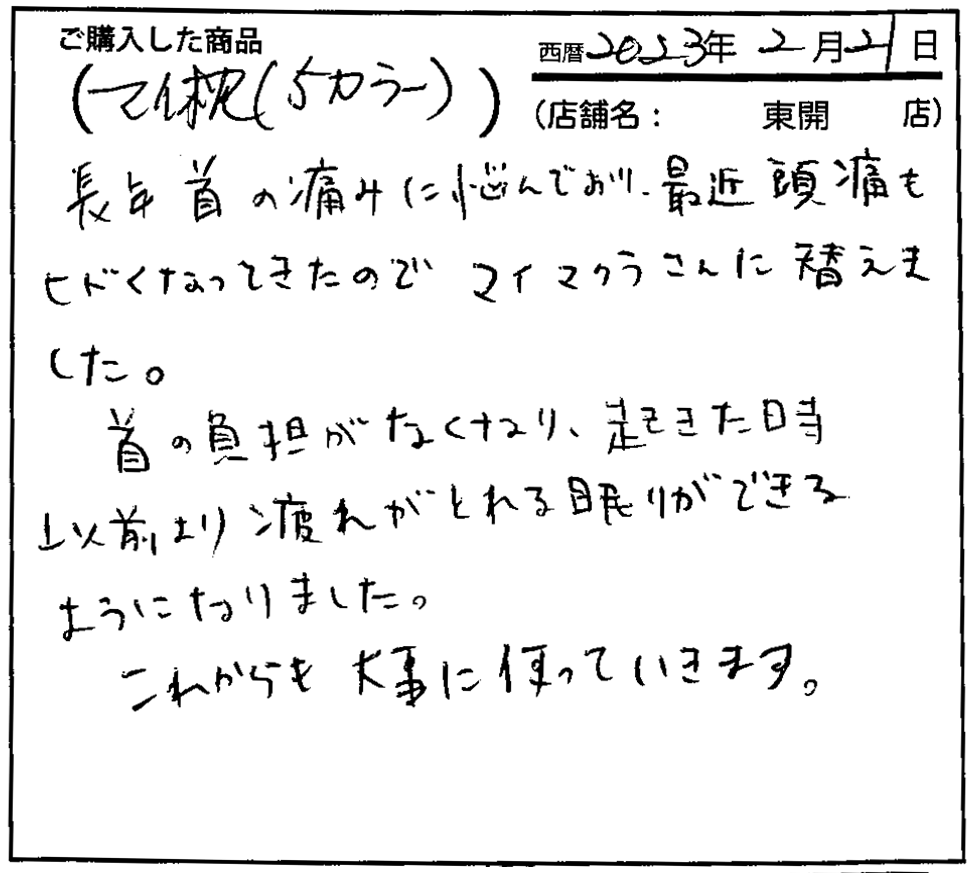 ご購入した商品
西暦2023年2月21日
(マイ枕(5カラー))
(店舗名: 東開 店)
長年首の痛みに悩んでおり、最近頭痛も
ヒドくなってきたので マイマクラさんに替えま
した。
首の負担がなくなり、起きた時
以前より疲れがとれる眠りができる
ようになりました。
これからも大事に使っていきます。